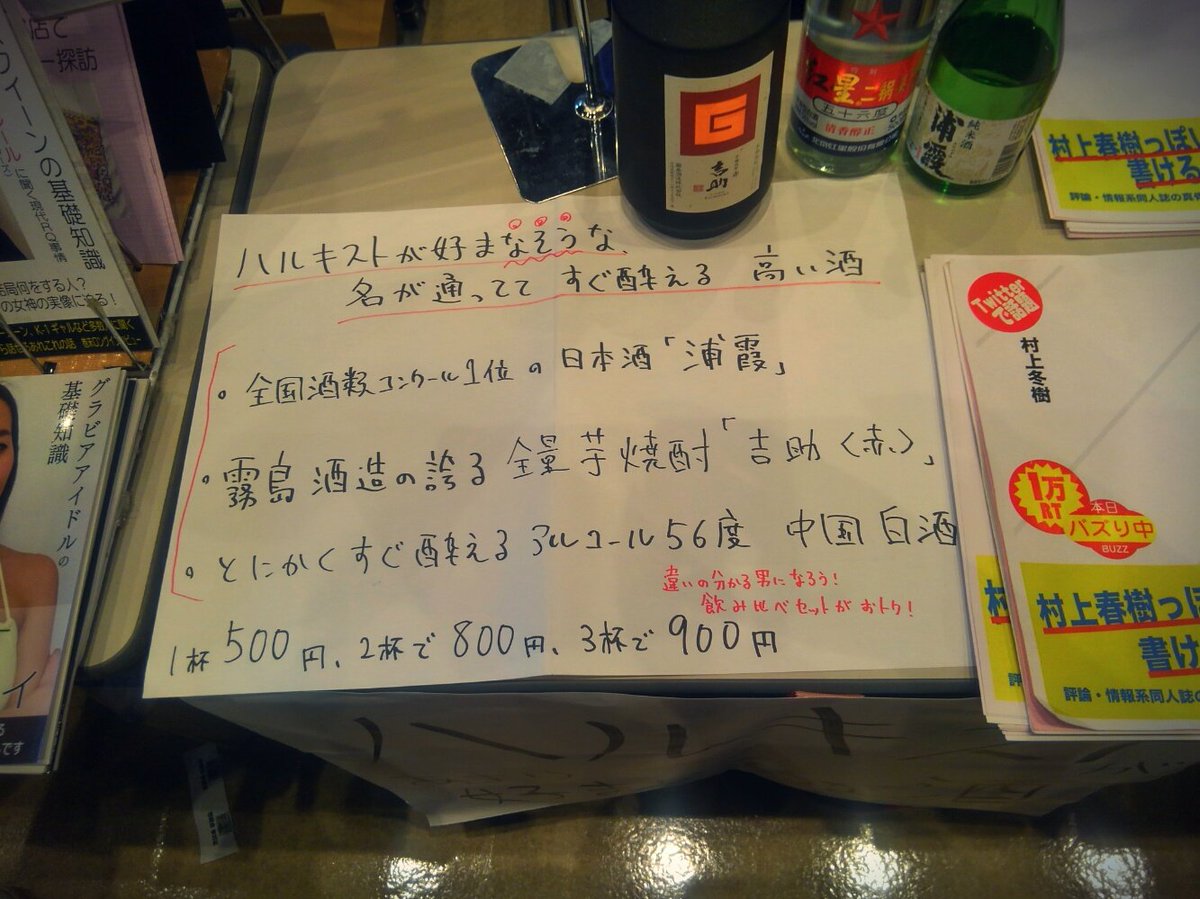 ハルキストが好まなそうな、
名が通ってて すぐ酔える 高い酒
・全国酒類コンクール1位の日本酒「浦霞」
・霧島酒造の誇る 全量芋焼酎「吉助〈赤〉」
・とにかくすぐ酔える アルコール56度 中国白酒
違いの分かる男になろう!
飲み比べセットがおトク!
1杯500円、2杯で800円、3杯で900円
G
吉助
红星二锅
五十六度
清香醇正
純米酒
浦霞
村上春樹っぽい
書ける
評論・情報系同人誌の真
Twitterで話題
村上冬樹
1万RT
本日
バズり中
BUZZ
村上春樹っぽ
書け
評論・情報系同人誌の
店で
探訪
ウィーンの基礎知識
に聞く現代RQ事情
結局何をする人?
の女神の実像に迫る!
ーン、K-1ギャルなど多数
グラビアアイドルの
基礎知識
イ
です